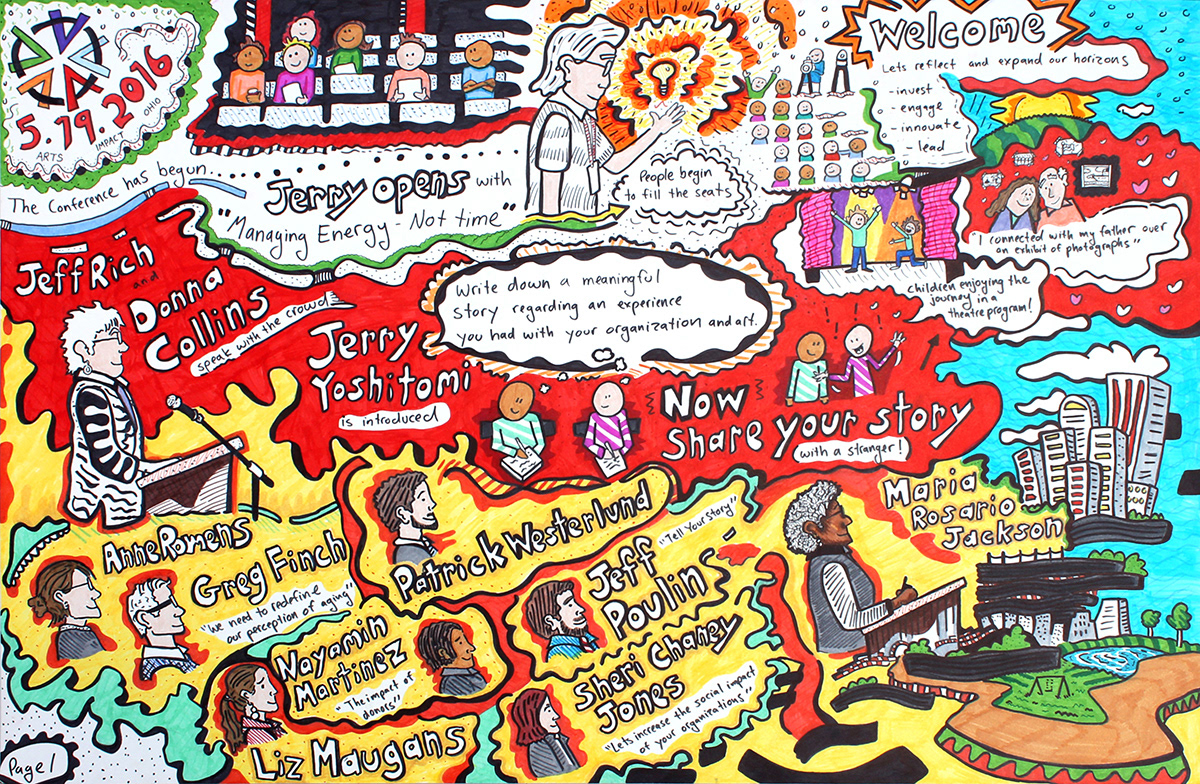 5.19.2016
ARTS IMPACT OHIO
The Conference has begun....
Jerry opens with
"Managing Energy - Not time"
People begin
to fill the seats
Welcome
Lets reflect and expand our horizons
- invest
- engage
- innovate
- lead
"I connected with my father over
an exhibit of photographs"
Children enjoying the
journey in a
theatre program!
Jeff Rich
and
Donna
Collins
speak with the crowd
Jerry
Yoshitomi
is introduced
Write down a meaningful
story regarding an experience
you had with your organization and art.
Now
share your story
with a stranger!
Maria
Rosario
Jackson
Anne Romens
Greg Finch
"We need to redefine
our perception of aging"
Patrick Westerlund
"Tell Your story"
Jeff
Poulin
Nayamin
Martinez
"The impact of
donors"
Sheri Chaney
Jones
"Lets increase the social impact
of your organizations"
Liz Maugans
Page 1